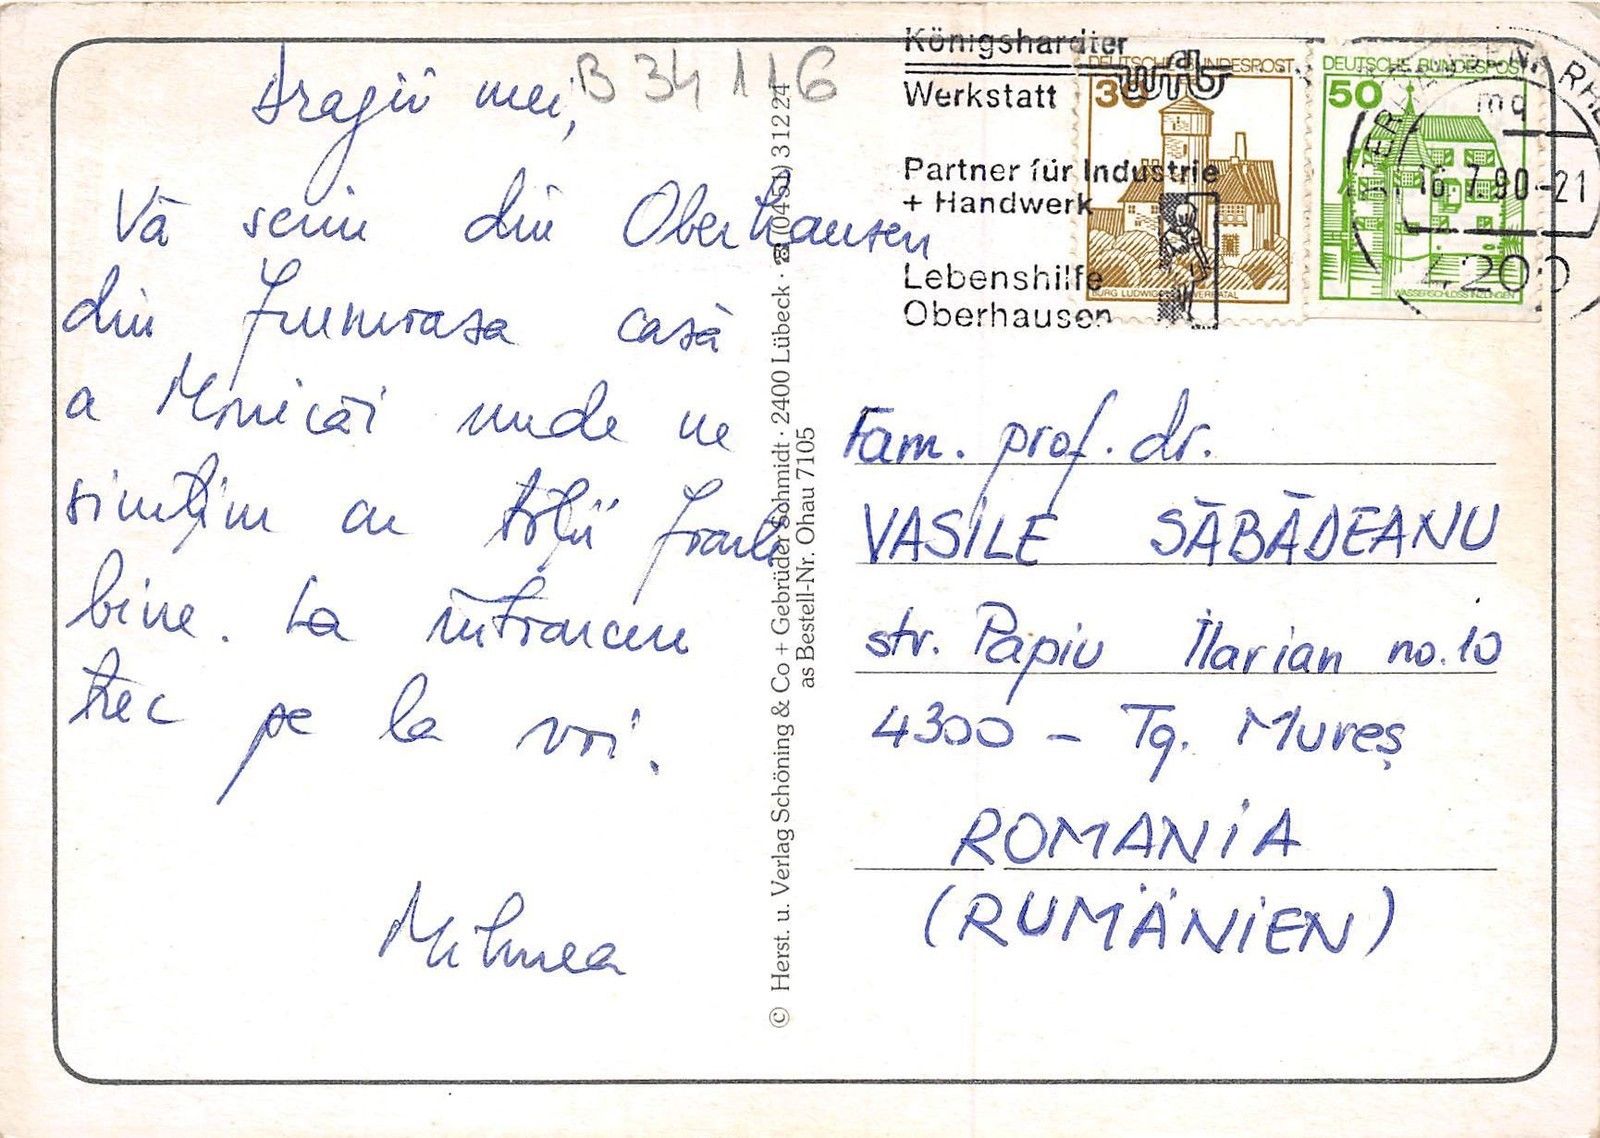 Dragii mei,
Vă scriu din Oberhausen
din frumoasa casă
a Monicăi unde ne
simțim cu toții foarte
bine. La întoarcere
trec pe la voi.
Mihnea
B 34 116
© Herst. u. Verlag Schöning & Co + Gebrüder Schmidt · 2400 Lübeck · ☎ (0451) 31224
as Bestell-Nr. Ohau 7105
Königshardter
Werkstatt
wfb
Partner für Industrie
+ Handwerk
Lebenshilfe
Oberhausen
DEUTSCHE BUNDESPOST
30
BURG LUDWIGSTEIN WERRATAL
DEUTSCHE BUNDESPOST
50
WASSERSCHLOSS INZLINGEN
OBERHAUSEN, RHEINL
mq
16.7.90-21
4200
Fam. prof. dr.
VASILE SĂBĂDEANU
str. Papiu Ilarian no. 10
4300 - Tg. Mureș
ROMANIA
(RUMÄNIEN)